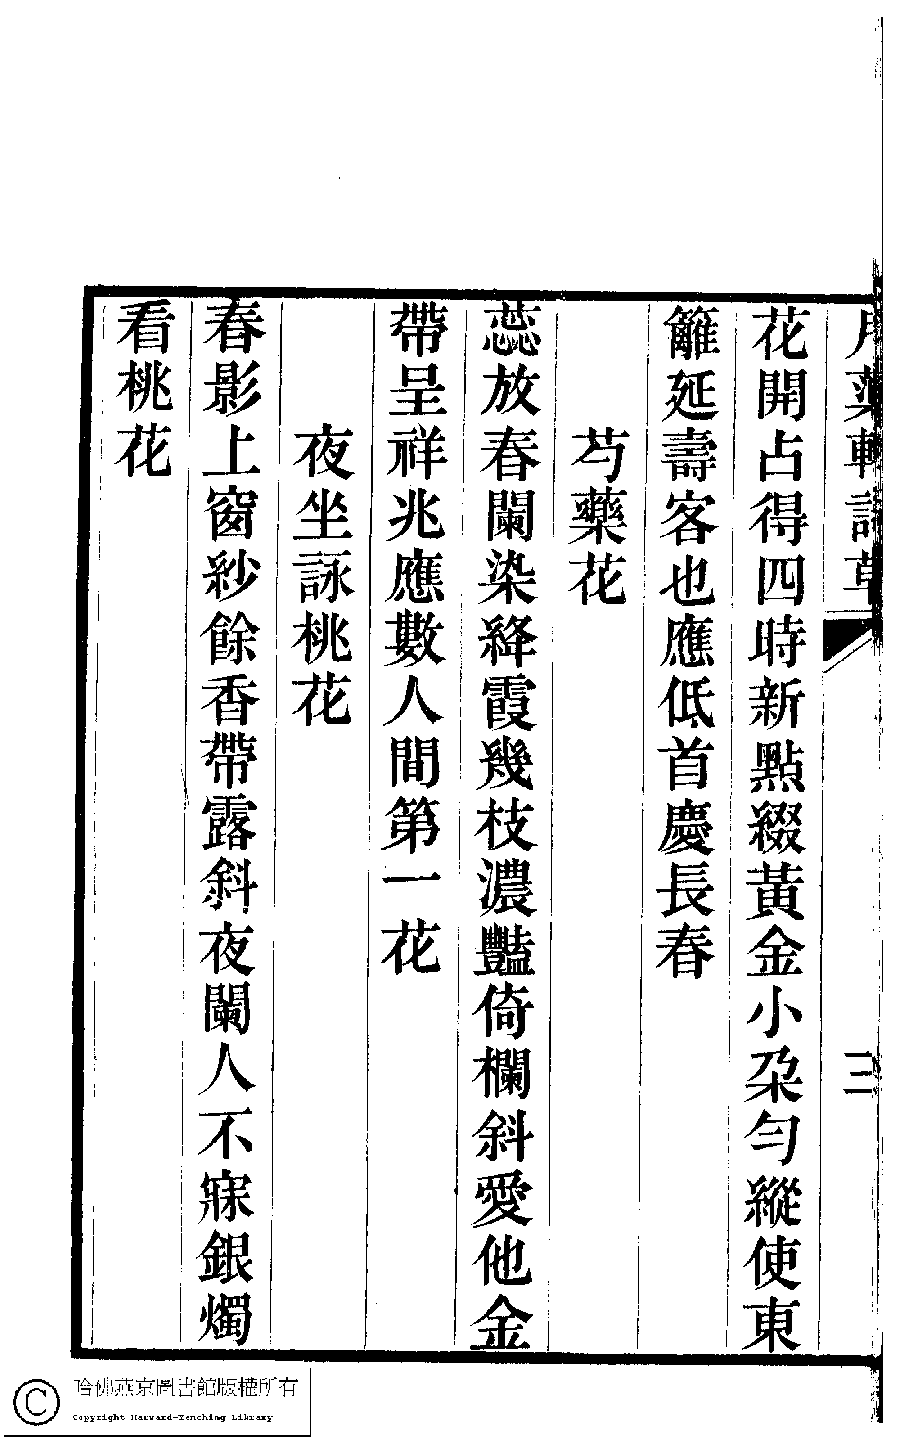 月蕖軒詩草
三
花開占得四時新點綴黃金小朶勻縱使東
籬延壽客也應低首慶長春
芍藥花
蕊放春闌染絳霞幾枝濃豔倚欄斜愛他金
帶呈祥兆應數人間第一花
夜坐詠桃花
春影上窗紗餘香帶露斜夜闌人不寐銀燭
看桃花
哈佛燕京圖書館版權所有
Copyright Harvard-Yenching Library